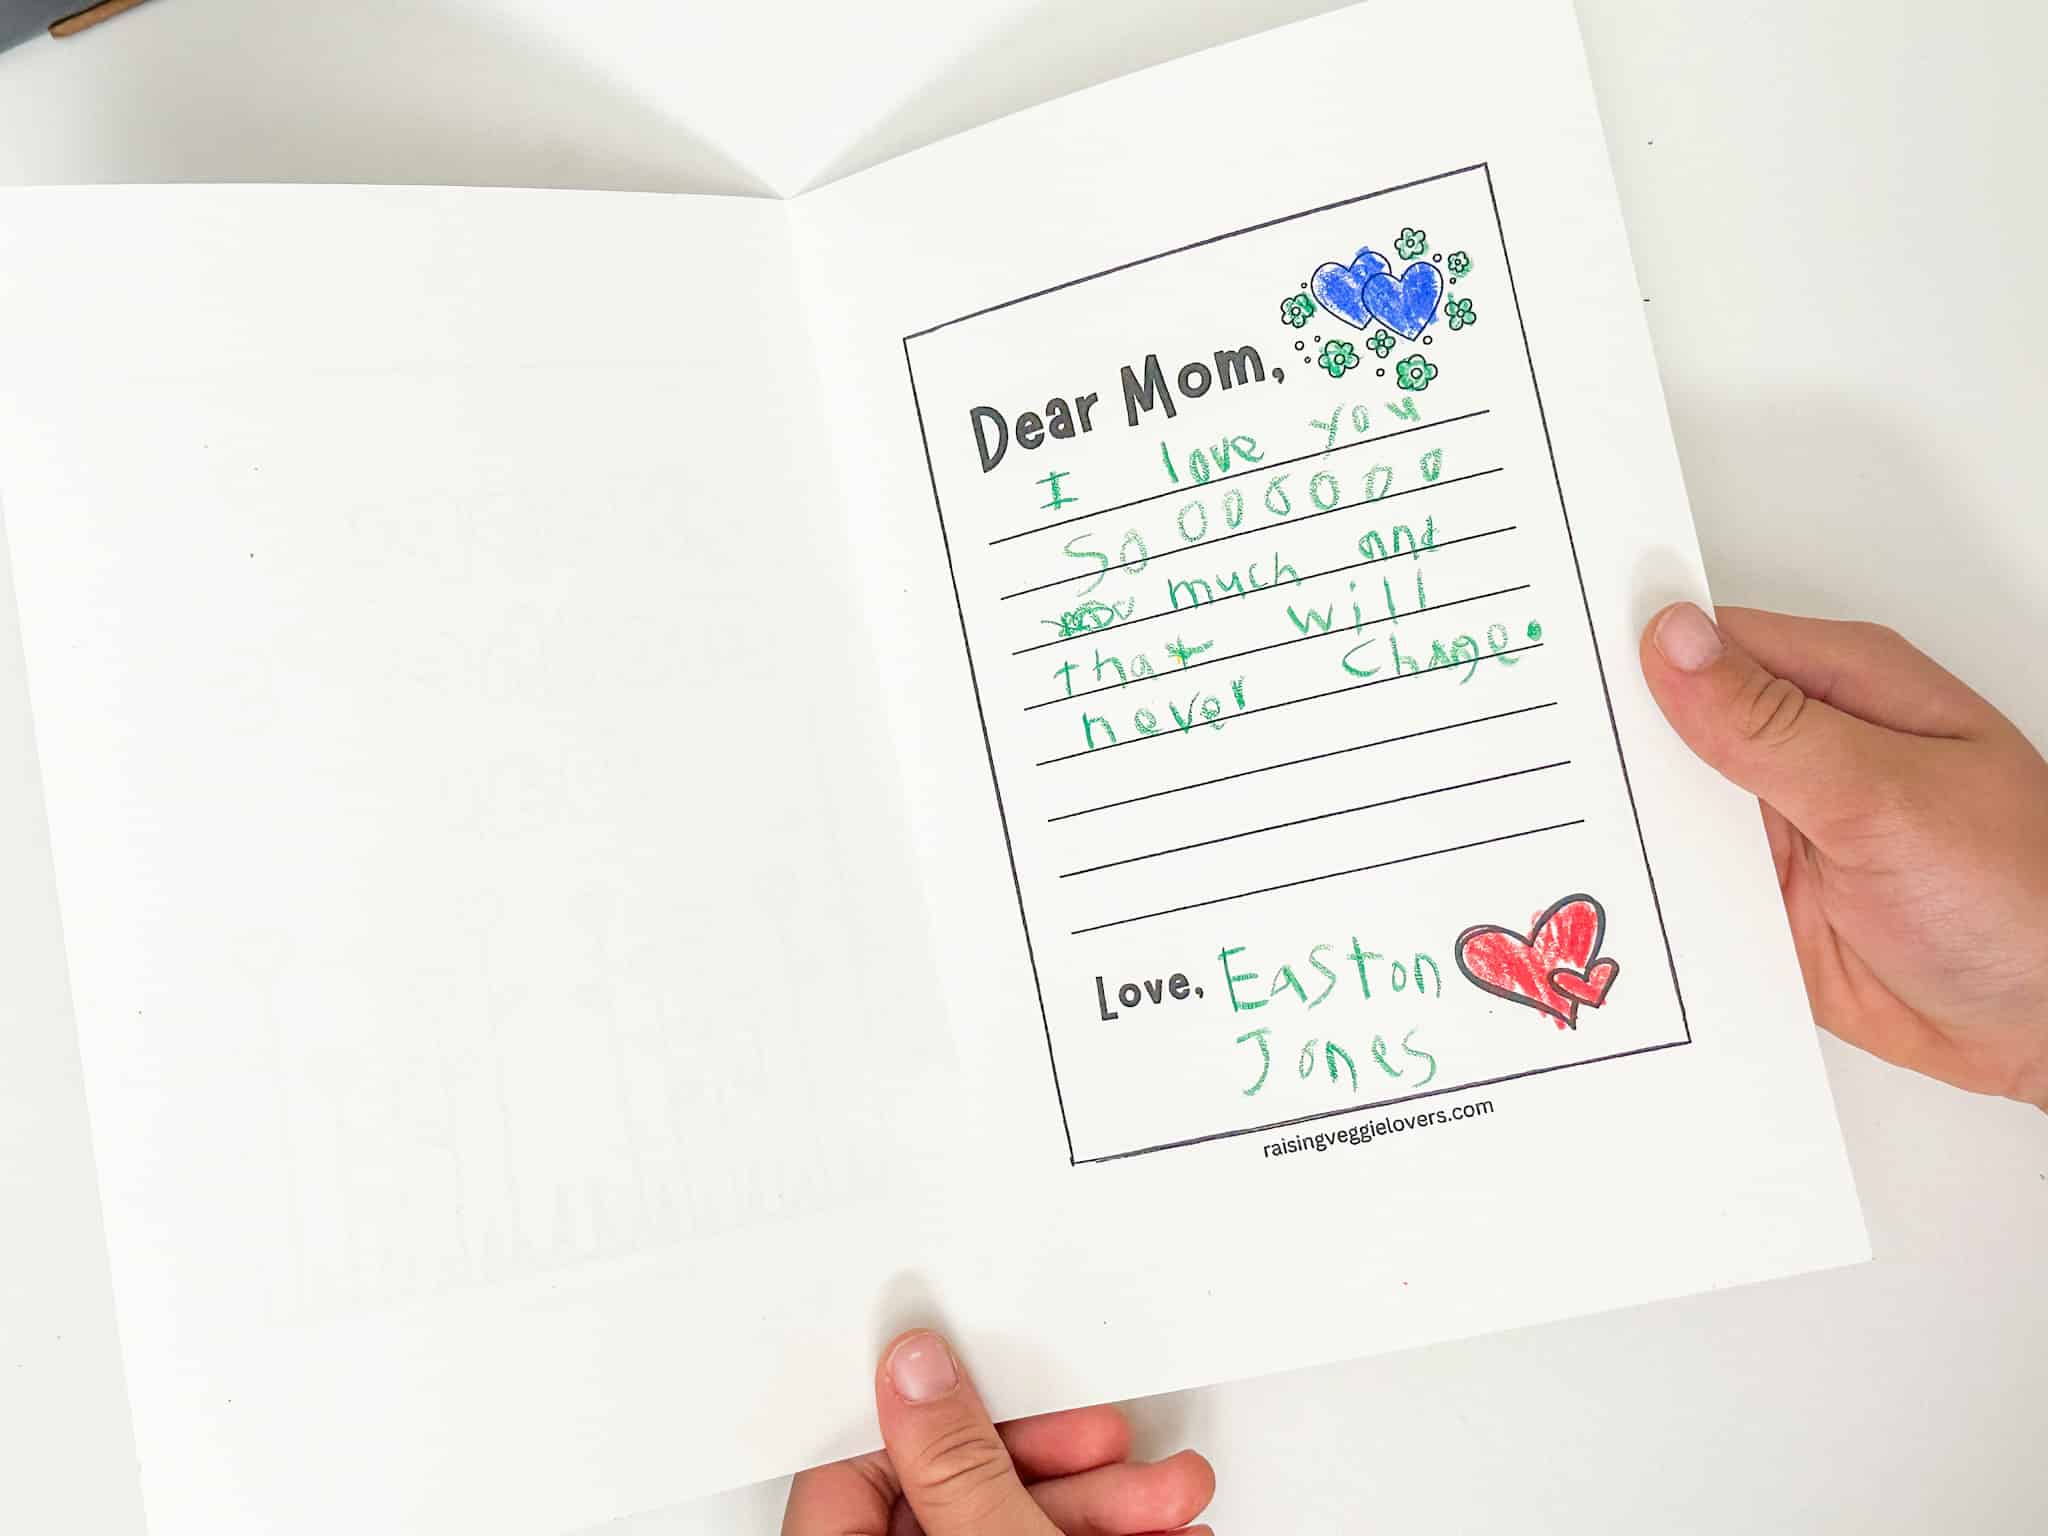 Dear Mom,
I love you
So oooooo
much and
that will
never change.
Love, Easton
Jones
raisingveggielovers.com